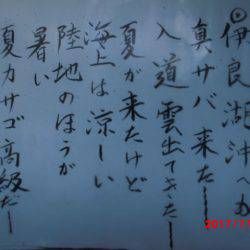 ◎伊良湖沖へも
真サバ来たー
入道雲出てきたー
夏が来たけど
海上は涼しい
陸地のほうが
暑い
夏カサゴ高級だー
2017/1